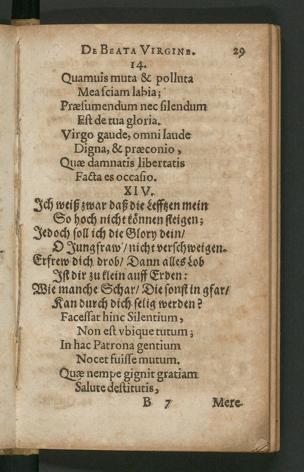 DE BEATA VIRGINE. 29
14.
Quamuis muta & polluta
Mea sciam labia;
Præsumendum nec silendum
Est de tua gloria.
Virgo gaude, omni laude
Digna, & præconio,
Quæ damnatis libertatis
Facta es occasio.
XIV.
Ich weiß zwar daß die Lefftzen mein
So hoch nicht können steigen;
Jedoch soll ich die Glory dein/
O Jungfraw/ nicht verschweigen.
Erfrew dich drob/ Dann alles Lob
Ist dir zu klein auff Erden:
Wie manche Schar/ Die sonst in gfar/
Kan durch dich selig werden?
Facessat hinc Silentium,
Non est vbique tutum;
In hac Patrona gentium
Nocet fuisse mutum.
Quæ nempe gignit gratiam
Salute destitutis,
B 7 Mere-